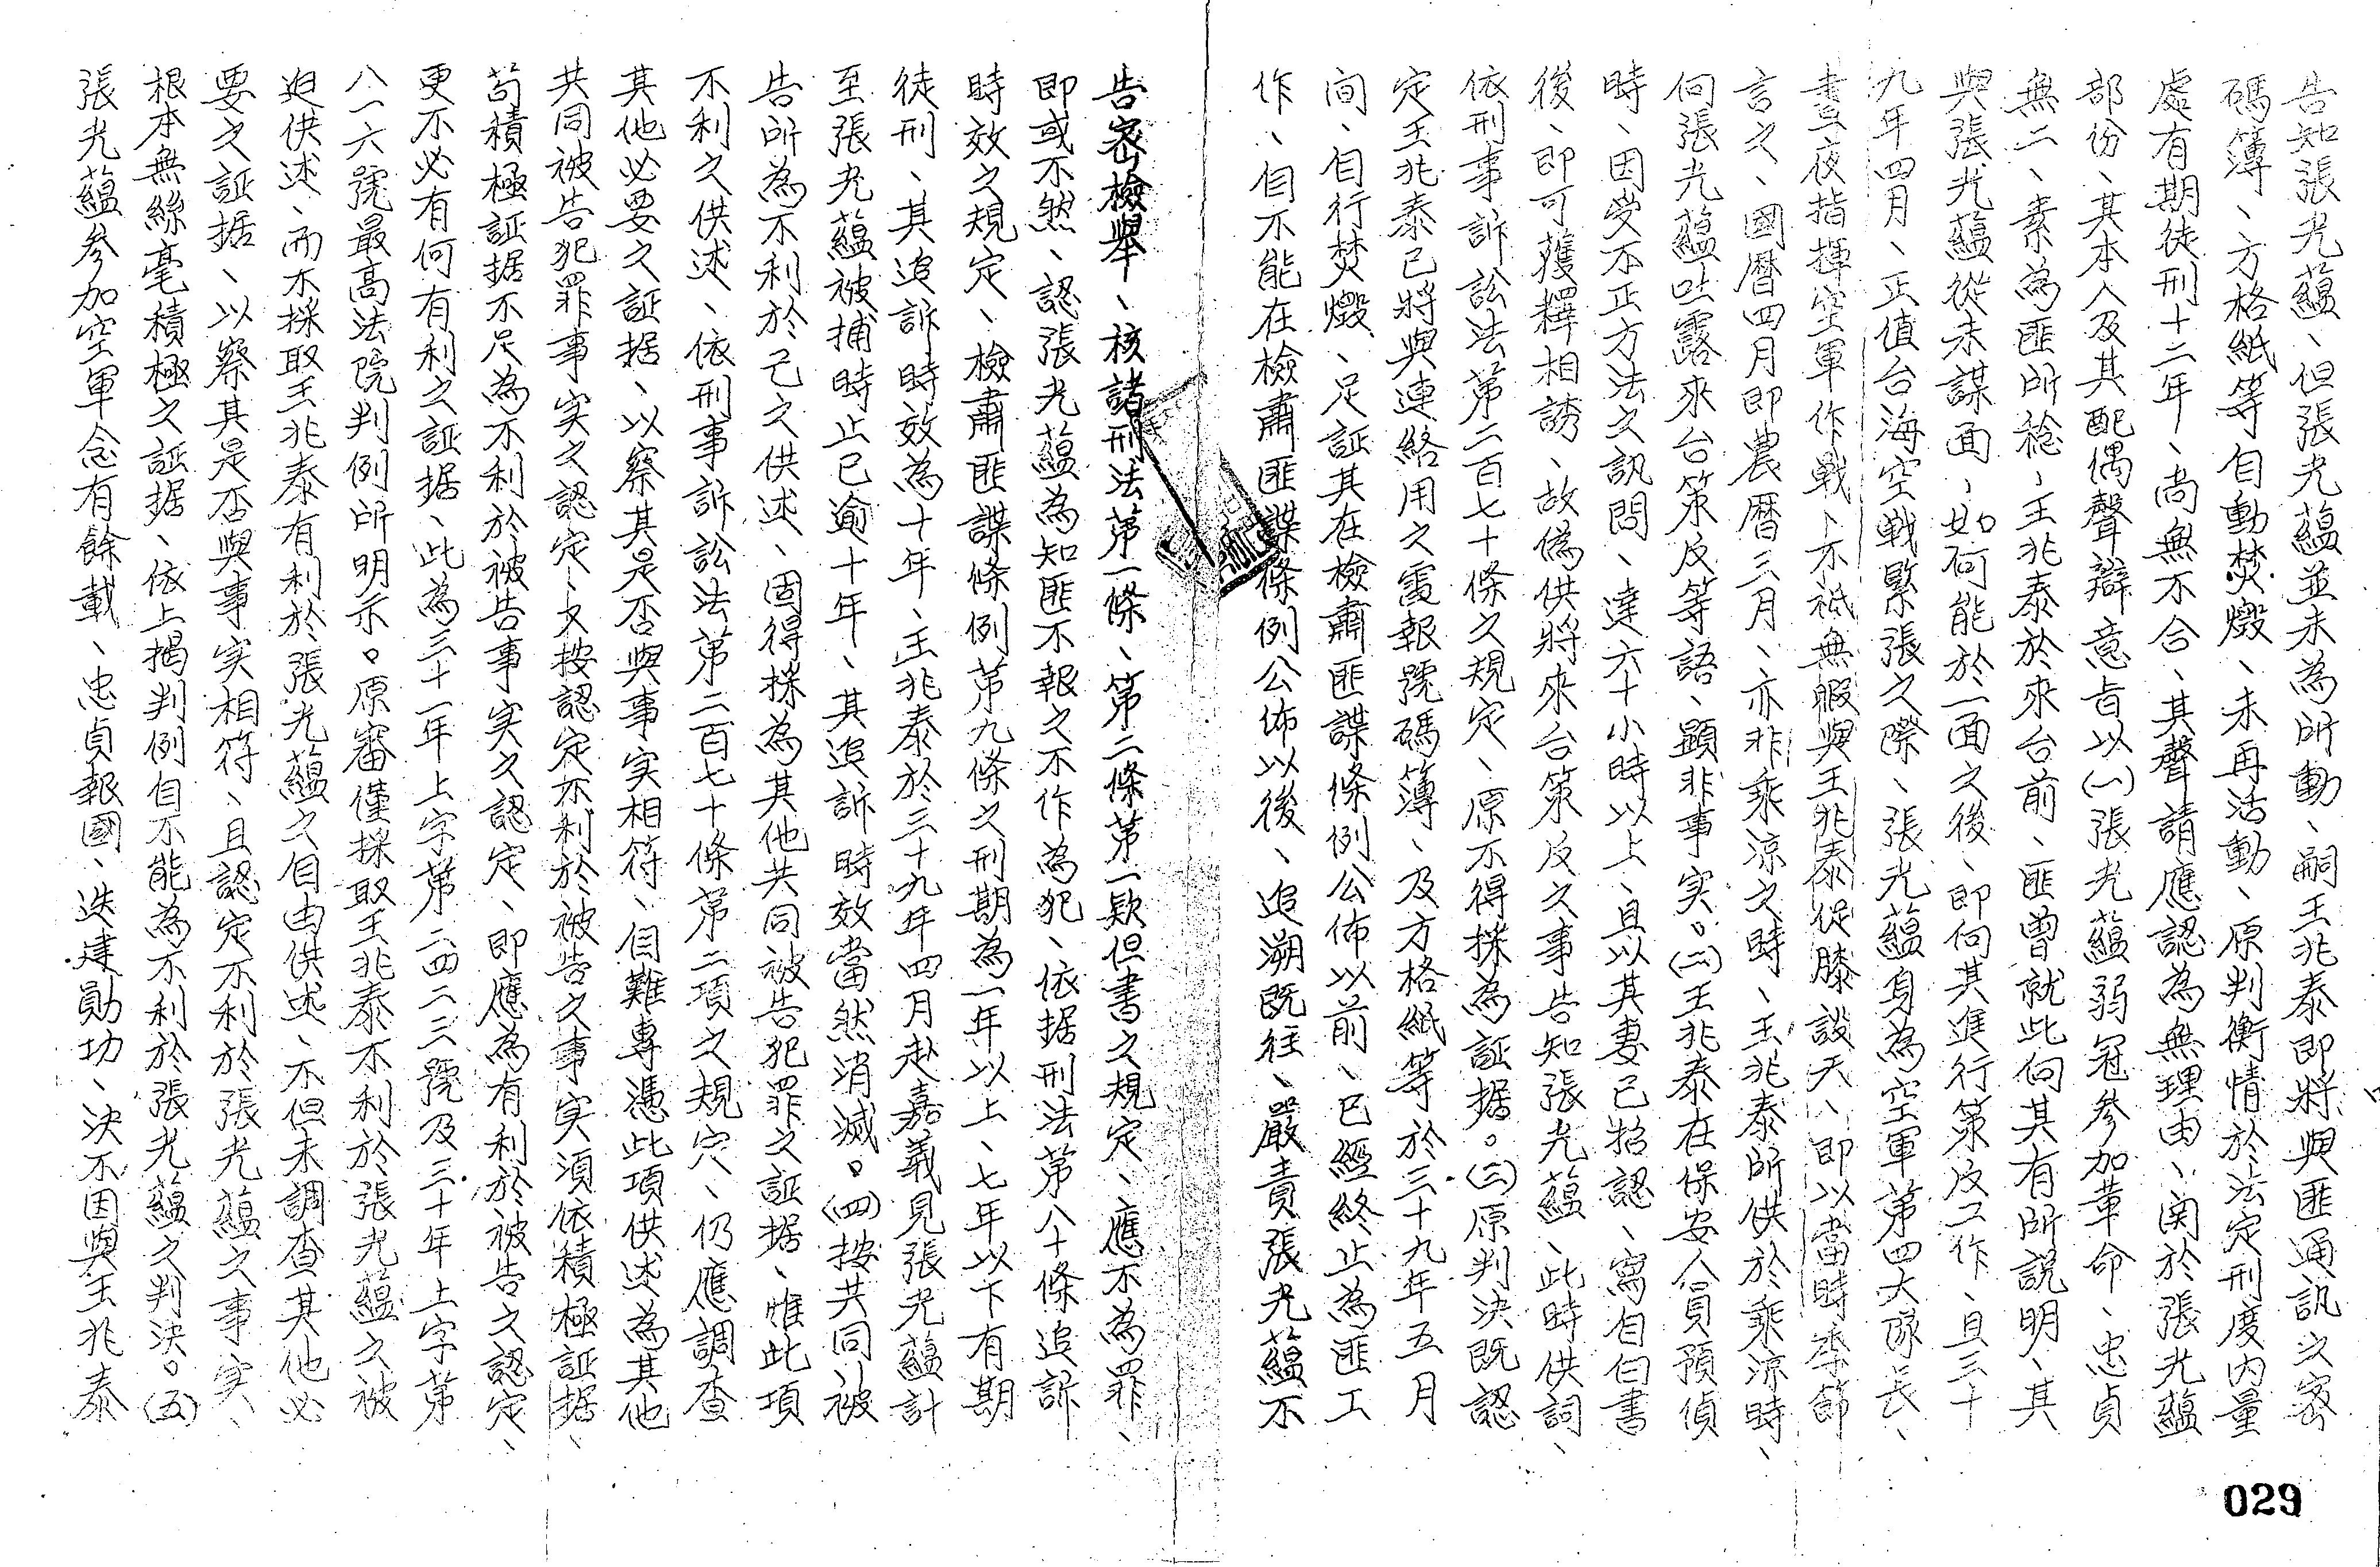 告知張光蘊、但張光蘊並未為所動、嗣王兆泰即將與匪通訊之密
碼簿、方格紙等自動焚燬、未再活動、原判衡情於法定刑度內量
處有期徒刑十二年、尚無不合、其聲請應認為無理由、関於張光蘊
部份、其本人及其配偶聲辯意旨以(一)張光蘊弱冠參加革命、忠貞
無二、素為匪所稔、王兆泰於來台前、匪曾就此向其有所說明、其
與張光蘊從未謀面、如何能於一面之後、即向其進行策反工作、且三十
九年四月、正值台海空戰緊張之際、張光蘊身為空軍第四大隊長、
晝夜指揮空軍作戰、不祇無暇與王兆泰促膝談天、即以當時季節
言之、國曆四月即農曆三月、亦非乘涼之時、王兆泰所供於乘涼時、
向張光蘊吐露來台策反等語、顯非事实。(二)王兆泰在保安人員預偵
時、因受不正方法之訊問、達六十小時以上、且以其妻已招認、寫自白書
後、即可獲釋相誘、故偽供將來台策反之事告知張光蘊、此時供詞、
依刑事訴訟法第二百七十條之規定、原不得採為証据。(三)原判決既認
定王兆泰已將與連絡用之電報號碼簿、及方格紙等於三十九年五月
间、自行焚燬、足証其在檢肅匪諜條例公佈以前、已經終止為匪工
作、自不能在檢肅匪諜條例公佈以後、追溯既往、嚴責張光蘊不
告密檢舉、核諸刑法第一條、第二條第一欵但書之規定、應不為罪、
即或不然、認張光蘊為知匪不報之不作為犯、依据刑法第八十條追訴
時效之規定、檢肅匪諜條例第九條之刑期為一年以上、七年以下有期
徒刑、其追訴時效為十年、王兆泰於三十九年四月赴嘉義見張光蘊計
至張光蘊被捕時止已逾十年、其追訴時效當然消滅。(四)按共同被
告所為不利於己之供述、固得採為其他共同被告犯罪之証据、惟此項
不利之供述、依刑事訴訟法第二百七十條第二項之規定、仍應調查
其他必要之証据、以察其是否與事实相符、自難專憑此項供述為其他
共同被告犯罪事实之認定、又按認定不利於被告之事实須依積極証据、
苟積極証据不足為不利於被告事实之認定、即應為有利於被告之認定、
更不必有何有利之証据、此為三十一年上字第二四二三號及三十年上字第
八一六號最高法院判例所明示。原審僅採取王兆泰不利於張光蘊之被
迫供述、而不採取王兆泰有利於張光蘊之自由供述、不但未調查其他必
要之証据、以察其是否與事实相符、且認定不利於張光蘊之事实、
根本無絲毫積極之証据、依上揭判例自不能為不利於張光蘊之判決。(五)
張光蘊參加空軍念有餘載、忠貞報國、迭建勛功、決不因與王兆泰
029